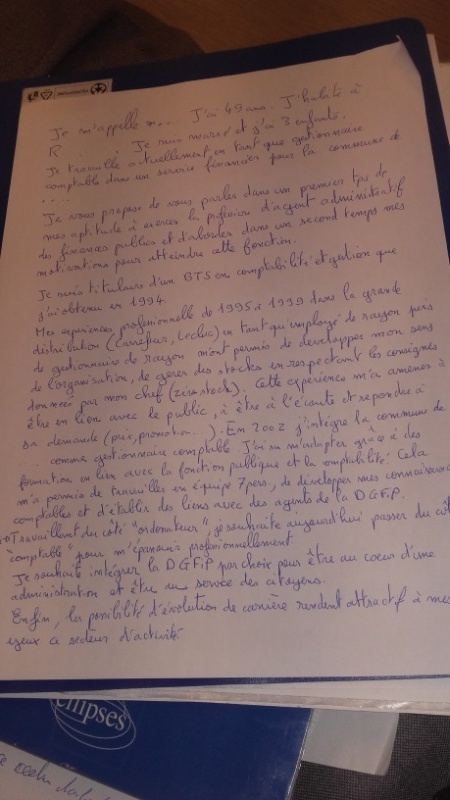 Je m'appelle .... J'ai 49 ans. J'habite à
R . Je suis marié et j'ai 3 enfants.
Je travaille actuellement en tant que gestionnaire
comptable dans un service financier pour la commune de
....
Je vous propose de vous parler dans un premier tps de
mes aptitude à exercer la profession d'agent administratif
des finances publics et d'aborder dans un second temps mes
motivations pour atteindre cette fonction.
Je suis titulaire d'un BTS en comptabilité et gestion que
j'ai obtenu en 1994.
Mes expériences professionnelle de 1995 à 1999 dans la grande
distribution (Carrefour, Leclerc) en tant qu'employé de rayon puis
de gestionnaire de rayon m'ont permis de développer mon sens
de l'organisation, de gérer des stocks en respectant les consignes
données par mon chef (zéro stock). Cette expérience m'a amenés à
être en lien avec le public, à être à l'écoute et répondre à
sa demande (prix, promotion...). En 2002 j'intègre la commune de
... comme gestionnaire comptable J'ai su m'adapter grâce à des
formation en lien avec la fonction publique et la comptabilité. Cela
m'a permis de travailler en équipe 7 pers, de développer mes connaissances
comptables et d'établir des liens avec des agents de la DGFiP.
Travaillant du côté "ordonnateur", je souhaite aujourd'hui passer du côté
"comptable" pour m'épanouir professionnellement
Je souhaite intégrer la DGFiP par choix pour être au coeur d'une
administration et être au service des citoyens.
Enfin, les possibilité d'évolution de carrière rendent attractif à mes
yeux ce secteur d'activité
ellipses